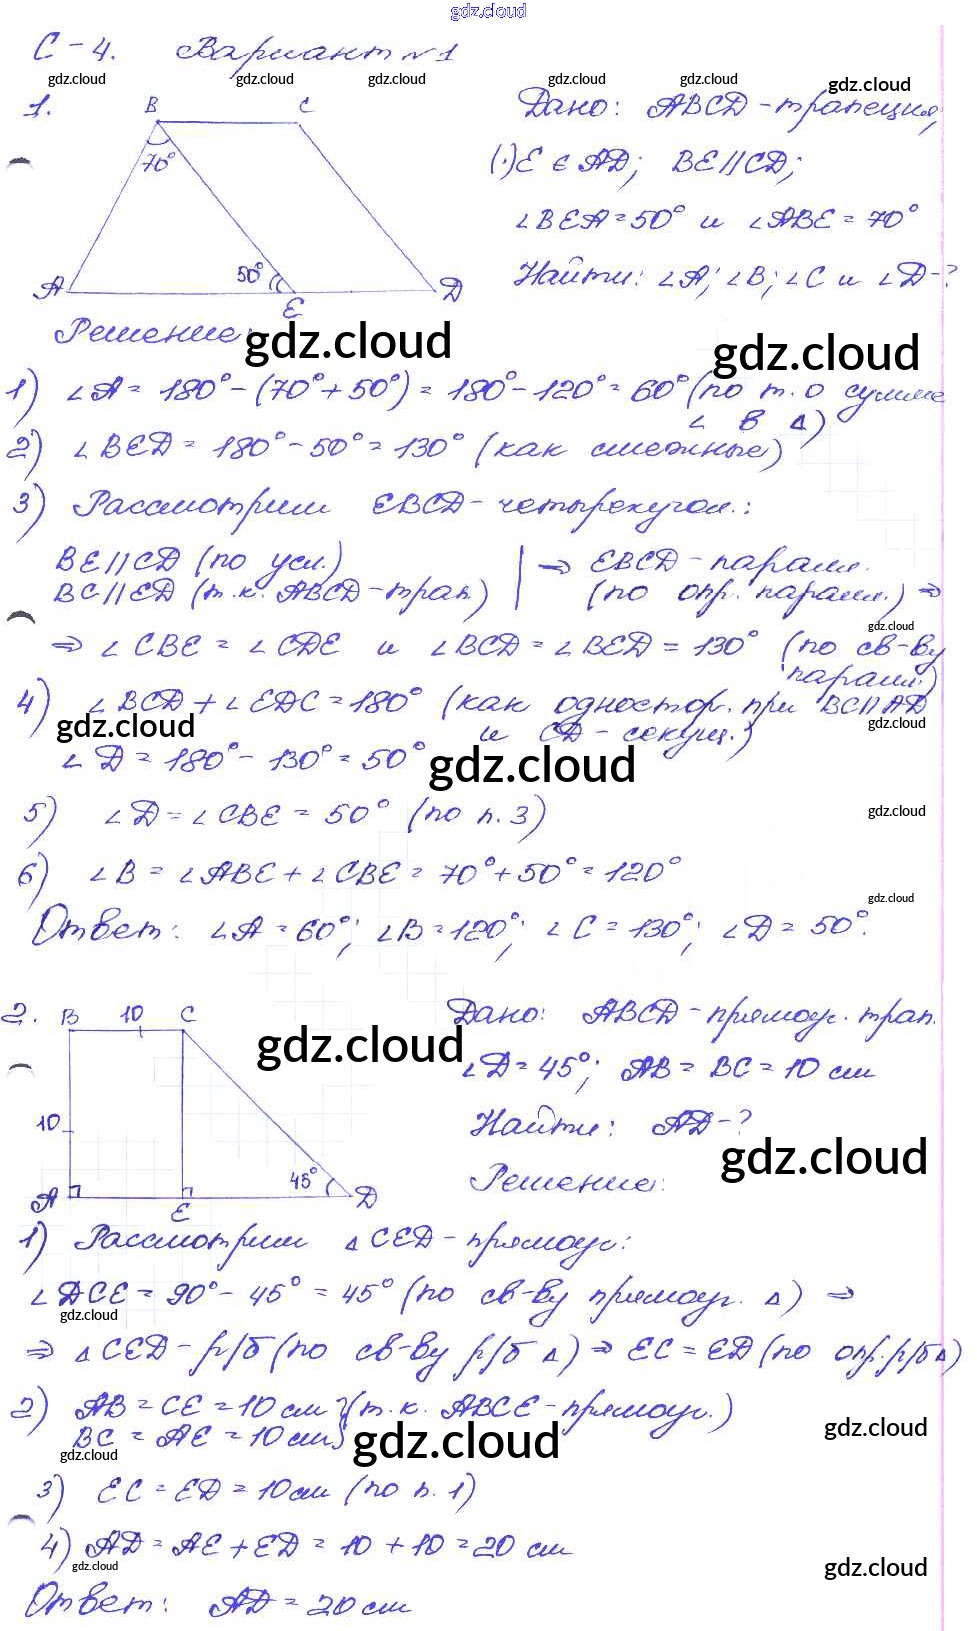 gdz.cloud
С-4. Вариант №1
gdz.cloud gdz.cloud gdz.cloud gdz.cloud gdz.cloud gdz.cloud
1. B C
70°
50°
A E D
Дано: ABCD-трапеция,
(·)E ∈ AD; BE||CD;
∠BEA=50° и ∠ABE=70°
Найти: ∠A; ∠B; ∠C и ∠D-?
Решение:
gdz.cloud gdz.cloud
1) ∠A=180°-(70°+50°)=180°-120°=60° (по т.о сумме
∠ в Δ)
2) ∠BED=180°-50°=130° (как смежные)
3) Рассмотрим EBCD-четырехугол.:
BE||CD (по усл.) | ⇒ EBCD-паралл.
BC||ED (т.к. ABCD-трап.) | (по опр. паралл.) ⇒
gdz.cloud
⇒ ∠CBE=∠CDE и ∠BCD=∠BED=130° (по св-ву
паралл.)
4) ∠BCD+∠EDC=180° (как одностор. при BC||AD
и CD-секущ.)
gdz.cloud gdz.cloud
∠D=180°-130°=50°
gdz.cloud
5) ∠D=∠CBE=50° (по п.3)
gdz.cloud
6) ∠B=∠ABE+∠CBE=70°+50°=120°
gdz.cloud
Ответ: ∠A=60°; ∠B=120°; ∠C=130°; ∠D=50°.
2. B 10 C
10
45°
A E D
gdz.cloud
Дано: ABCD-прямоуг. трап.
∠D=45°; AB=BC=10 см
Найти: AD-?
gdz.cloud
Решение:
1) Рассмотрим ΔCED-прямоуг:
∠DCE=90°-45°=45° (по св-ву прямоуг. Δ) ⇒
gdz.cloud
⇒ ΔCED-р/б (по св-ву р/б Δ) ⇒ EC=ED (по опр. р/б Δ)
2) AB=CE=10 см } (т.к. ABCE-прямоуг.)
BC=AE=10 см }
gdz.cloud gdz.cloud gdz.cloud
3) EC=ED=10 см (по п. 1)
4) AD=AE+ED=10+10=20 см
gdz.cloud gdz.cloud
Ответ: AD=20 см